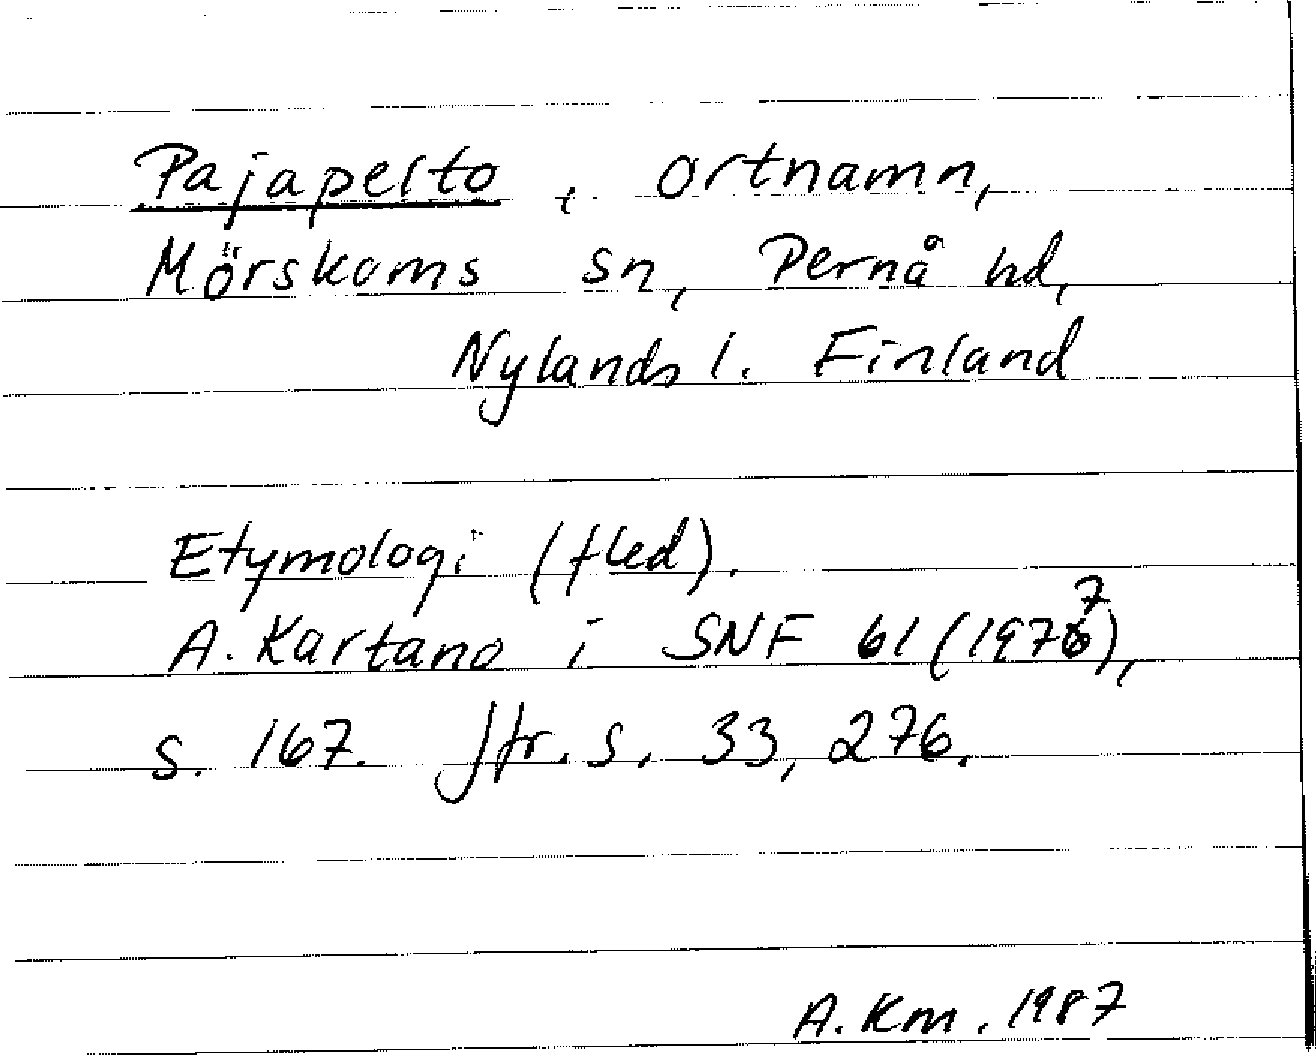 Pajapelto, ortnamn,
Mörskoms sn, Pernå hd,
Nylands l. Finland
Etymologi (fled).
A. Kartano i SNF 61 (1977),
s. 167. Jfr. s. 33, 276.
A. Km. 1987